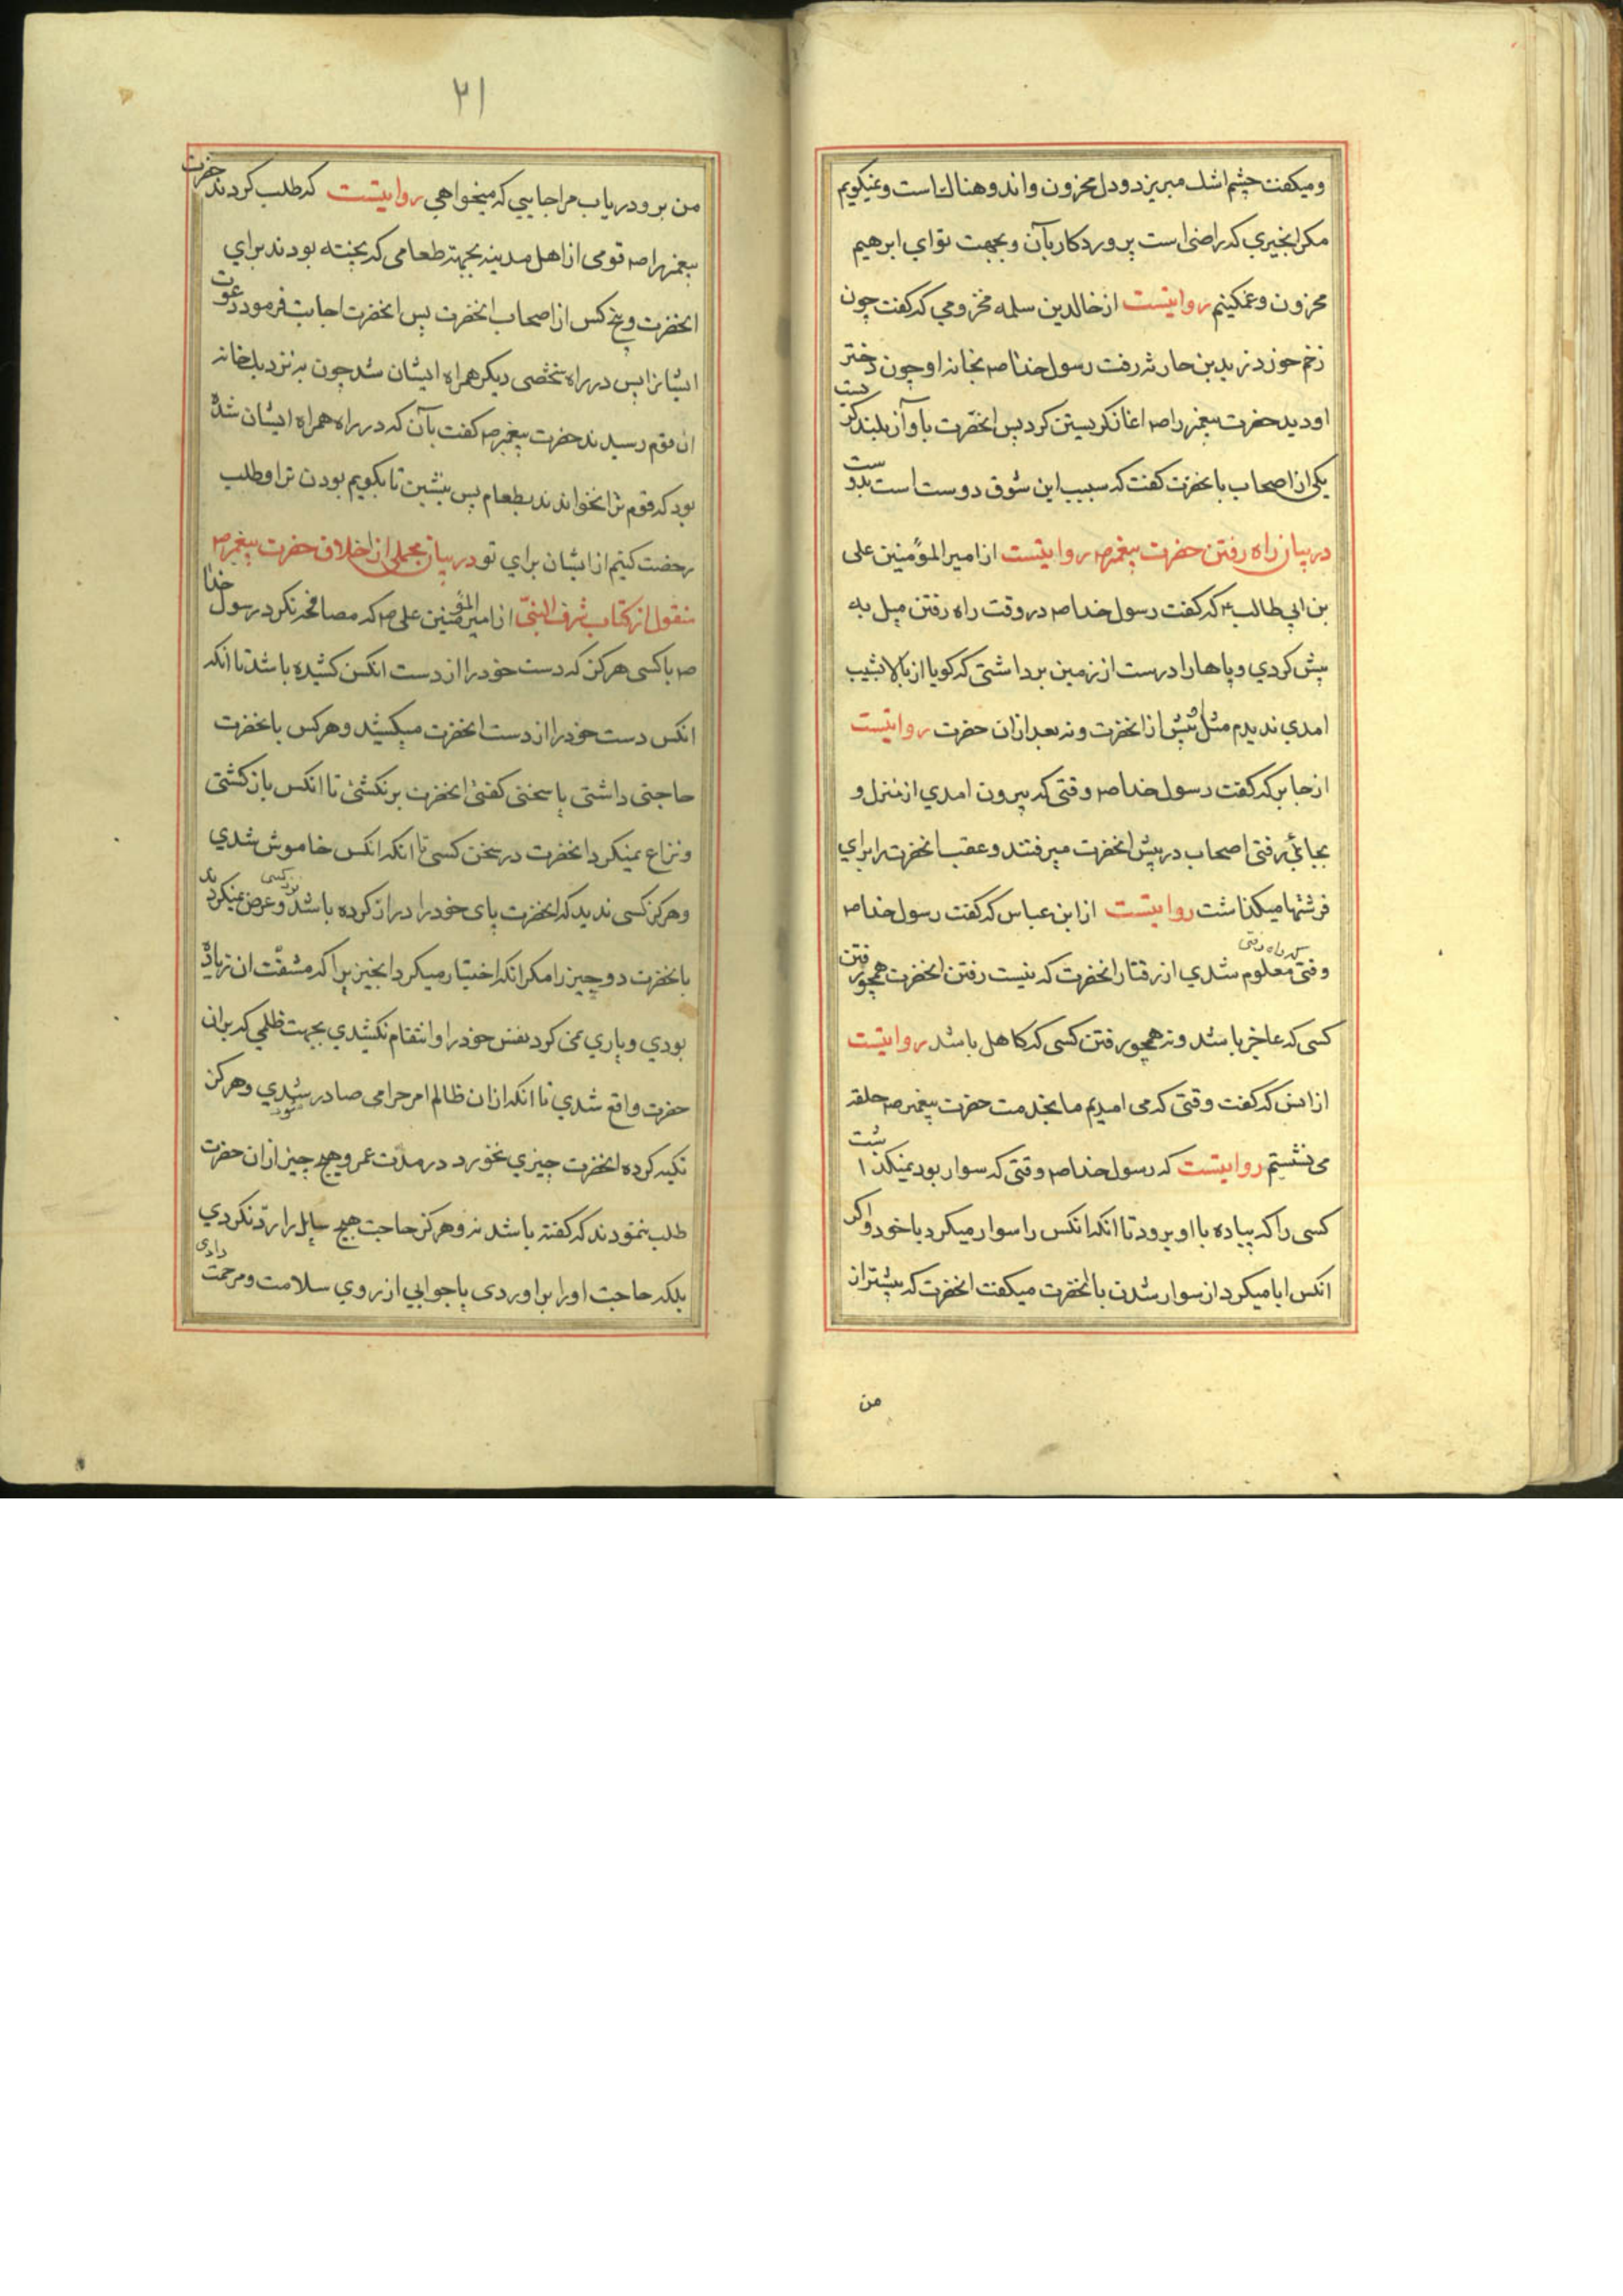 و میکفت چشم اشک میریزد و دل محزون و اندوهناک است و نمیکویم
مکر انچیزی که راضی است پروردکار بآن و بجهت تو ای ابرهیم
محزون و غمکینم روایتست از خالدین سلمه مخزومی که کفت چون
زخم خورد زید بن حارثه رفت رسول خدا صه بخانه او چون دختر
او دید حضرت پیغمبر را صه اغاز کریستن کرد پس انحضرت بآواز بلند کریست
یکی از اصحاب بانحضرت کفت که سبب این شوق دوست است بدوست
در بیان راه رفتن حضرت پیغمبر صه روایتست از امیر المؤمنین علی
بن ابی طالب ع که کفت رسول خدا صه در وقت راه رفتن میل به
پیش کردی و پاها را درست از زمین برداشتی که کویا از بالا بشیب
امدی ندیدم مثلش پیش از انحضرت و نه بعد ازان حضرت روایتست
از جابر که کفت رسول خدا صه وقتی که بیرون امدی از منزل و
بجائی رفتی اصحاب در پیش انحضرت میرفتند و عقب انحضرت را برای
فرشتها میکذاشت روایتست از ابن عباس که کفت رسول خدا صه
وقتی که راه رفتی معلوم شدی از رفتار انحضرت که نیست رفتن انحضرت همچو رفتن
کسی که عاجز باشد و نه همچو رفتن کسی که کاهل باشد روایتست
از انس که کفت وقتی که می امدیم ما بخدمت حضرت پیغمبر صه حلقه
می نشستیم روایتست که رسول خدا صه وقتی که سوار بود نمیکذاشت
کسی را که پیاده با او برود تا انکه انکس را سوار میکرد با خود و اکر
انکس ابا میکرد از سوار شدن با انحضرت میکفت انحضرت که پیشتر از
من
۲۱
من برو و دریاب مرا جایی که میخواهی روایتست که طلب کردند حضرت
پیغمبر را صه قومی از اهل مدینه بجهة طعامی که پخته بودند برای
انحضرت و پنج کس از اصحاب انحضرت پس انحضرت اجابت فرمود دعوت
ایشانرا پس در راه شخصی دیکر همراه ایشان شد چون به نزدیک خانه
ان قوم رسیدند حضرت پیغمبر صه کفت بآن که در راه همراه ایشان شده
بود که قوم ترا نخواندند بطعام پس بنشین تا بکویم بودن ترا و طلب
رخصت کنیم از ایشان برای تو در بیان مجملی از اخلاق حضرت پیغمبر صه
منقول از کتاب شرف النبی از امیر المؤمنین علی صه که مصافحه نکرد رسول خدا
صه با کسی هرکز که دست خود را از دست انکس کشیده باشد تا انکه
انکس دست خود را از دست انحضرت میکشید و هر کس بانحضرت
حاجتی داشتی یا سخنی کفتی انحضرت برنکشتی تا انکس بازکشتی
و نزاع نمیکرد انحضرت در سخن کسی تا انکه انکس خاموش شدی
و هرکز کسی ندید که انحضرت پای خود را دراز کرده باشد نزد کسی و عرض نمیکردند
بانحضرت دو چیز را مکر انکه اختیار میکرد انچیزیرا که مشقت ان زیاده
بودی و یاری نمی کرد نفس خود را و انتقام نکشیدی بجهت ظلمی که بران
حضرت واقع شدی تا انکه ازان ظالم امر حرامی صادر شدی و هرکز
تکیه کرده انحضرت چیزی نخورد در مدت عمر و هیچ چیز ازان حضرت
طلب ننمودند که کفته باشد نه و هرکز حاجت هیچ سایل را رد نکردی
بلکه حاجت او را براوردی یا جوابی از روی سلامت و مرحمت دادی